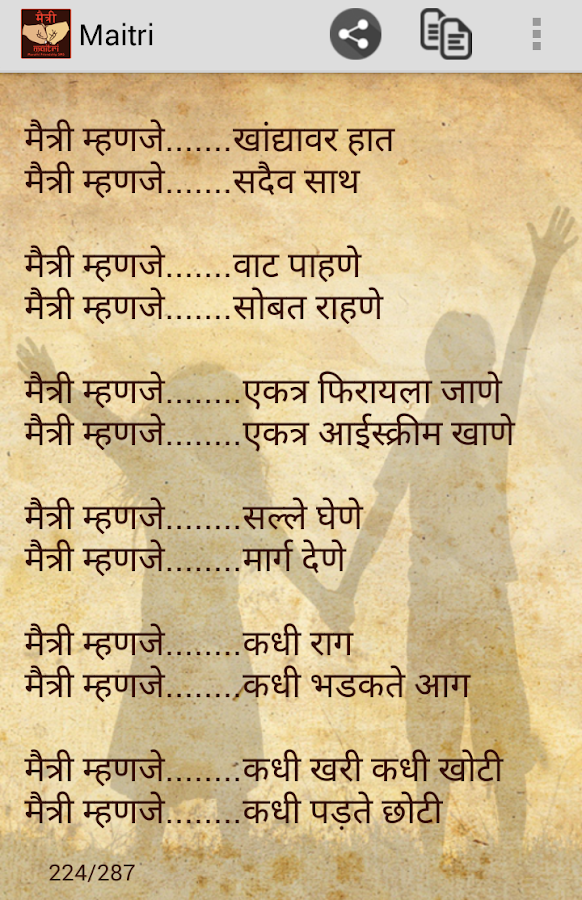 मैत्री
MAITRI
Maitri
मैत्री म्हणजे.......खांद्यावर हात
मैत्री म्हणजे.......सदैव साथ
मैत्री म्हणजे.......वाट पाहणे
मैत्री म्हणजे.......सोबत राहणे
मैत्री म्हणजे........एकत्र फिरायला जाणे
मैत्री म्हणजे........एकत्र आईस्क्रीम खाणे
मैत्री म्हणजे........सल्ले घेणे
मैत्री म्हणजे........मार्ग देणे
मैत्री म्हणजे........कधी राग
मैत्री म्हणजे........कधी भडकते आग
मैत्री म्हणजे........कधी खरी कधी खोटी
मैत्री म्हणजे........कधी पड़ते छोटी
224/287